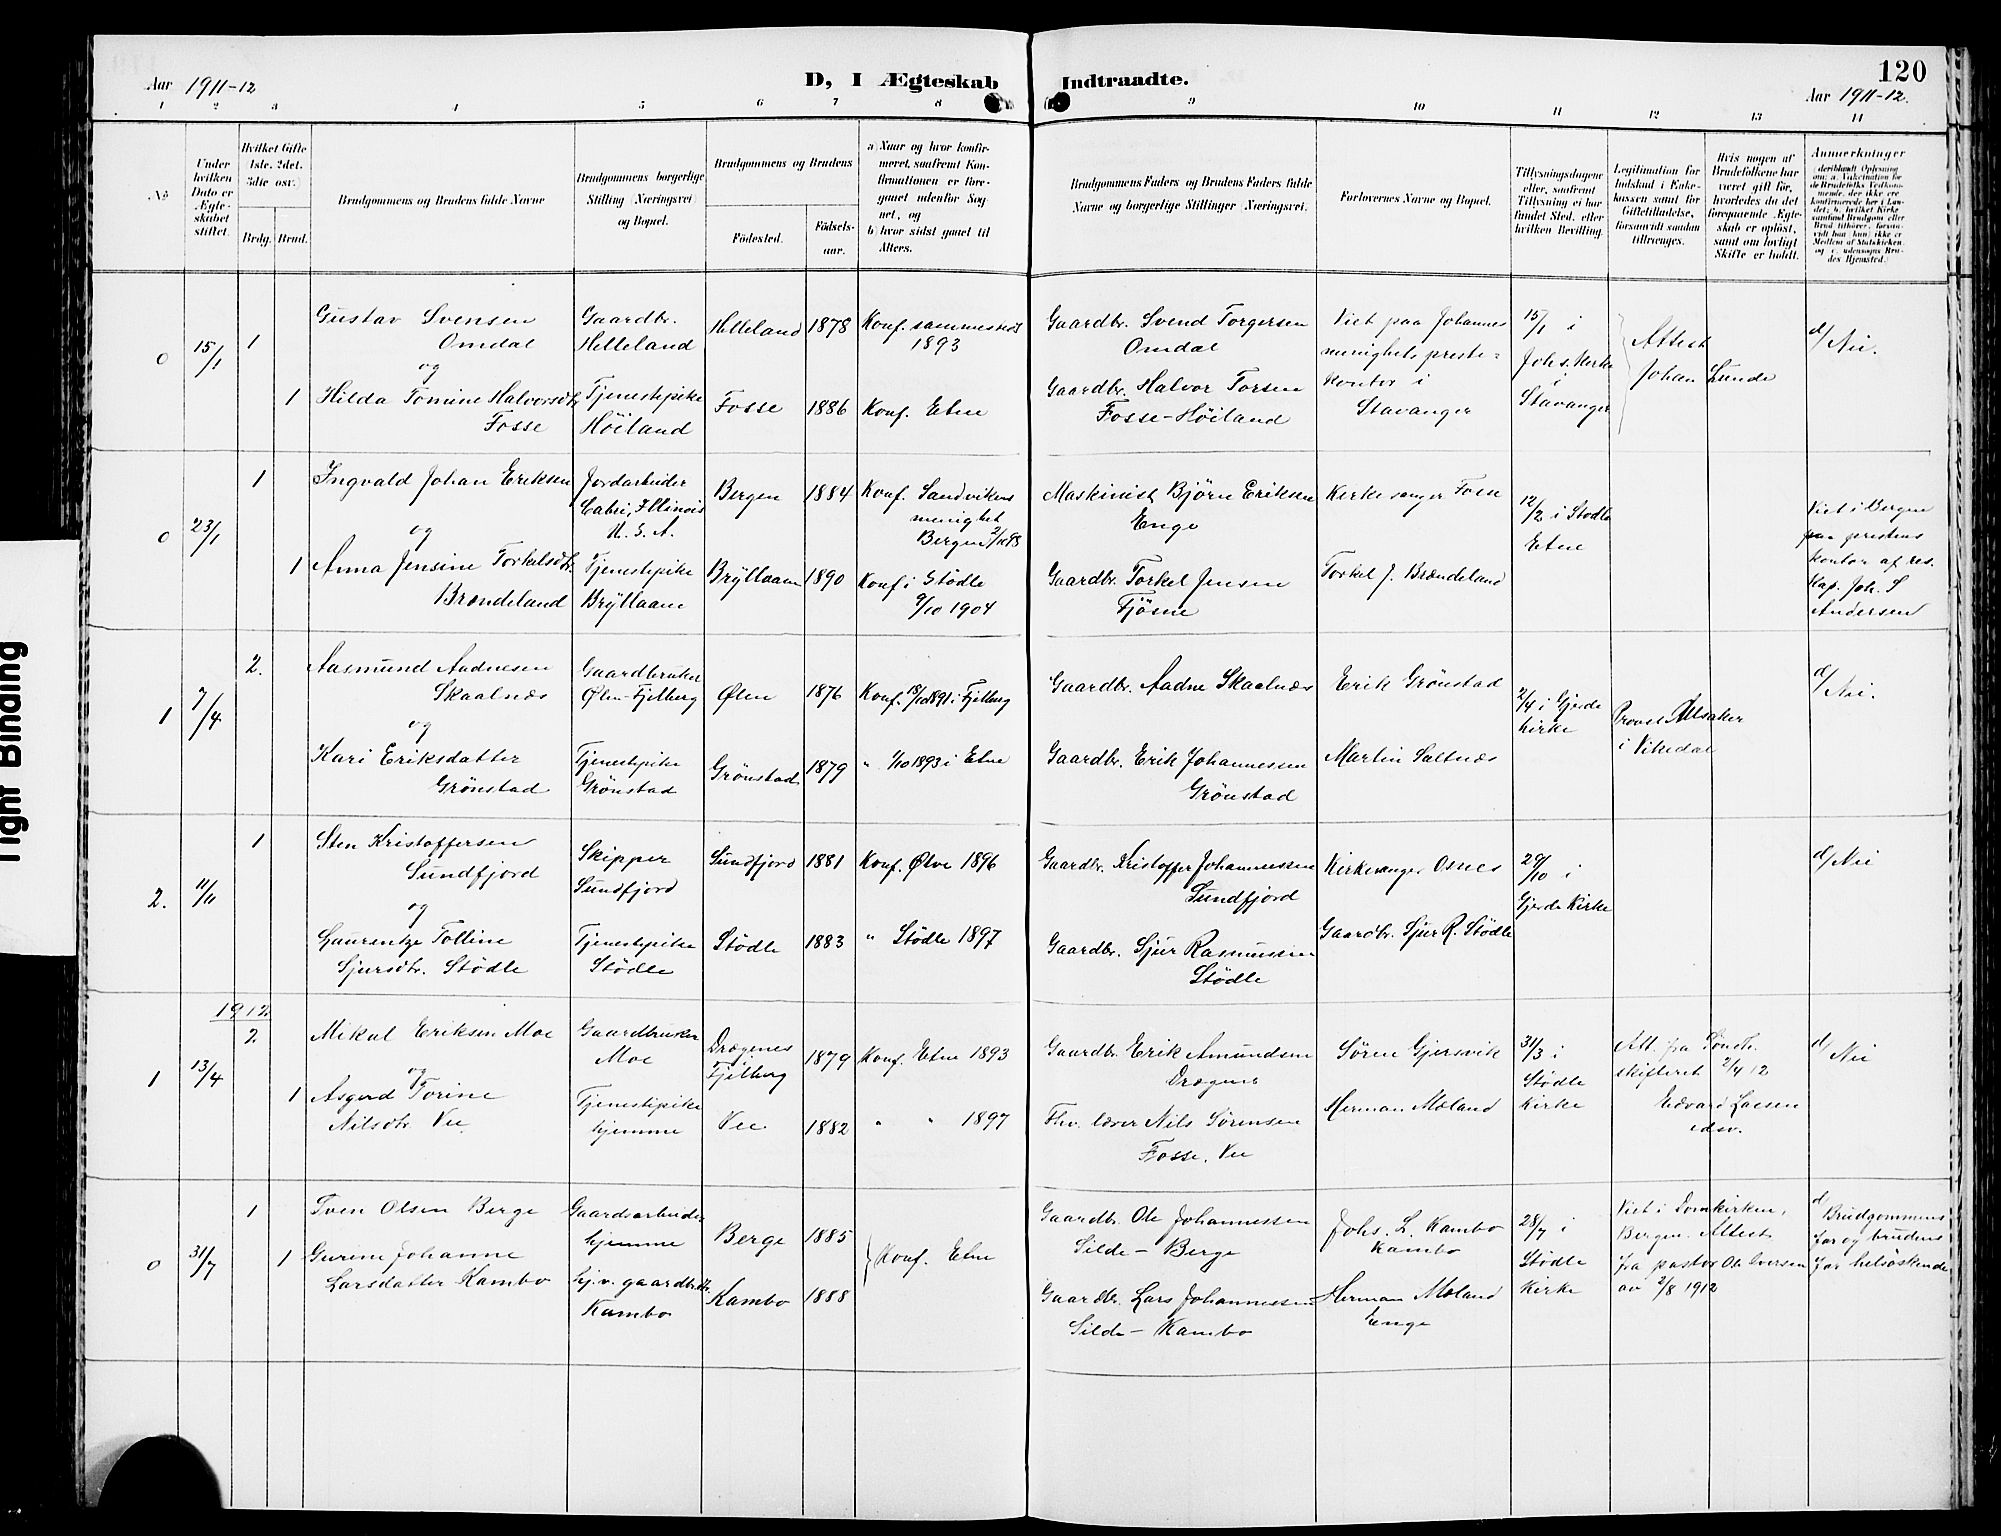 120
Aar 1911-12
D, I Ægteskab Indtraadte.
Aar 1911-12.
1 2 3 4 5 6 7 8 9 10 11 12 13 14
No
Under hvilken Dato er Ægteskabet stiftet.
Hvilket Gifte 1ste. 2det. 3die osv.
Brdg. Brud.
Brudgommens og Brudens fulde Navne
Brudgommens borgerlige Stilling (Næringsvei) og Bopæl.
Brudgommens og Brudens
Födested.
Födselsaar.
a) Naar og hvor konfirmeret, saafremt Konfirmationen er foregaaet udenfor Sognet, og
b) hvor sidst gaaet til Alters.
Brudgommens Faders og Brudens Faders fulde Navne og borgerlige Stillinger (Næringsvei).
Forlovernes Navne og Bopæl.
Tillysningsdagene eller, saafremt Tillysning ei har fundet Sted, efter hvilken Bevilling.
Legitimation for Indskud i Enkekassen samt for Giftetilladelse, forsaavidt saadan tiltrænges.
Hvis nogen af Brudefolkene har været gift før, hvorledes da det foregaaende Ægteskab er oplöst, samt om lovligt Skifte er holdt.
Anmerkninger
0 15/1 1
Gustav Svensen
Omdal
og
1 Hilda Tomine Halvorsdtr
Fosse
Gaardbr.
Helleland
Tjenestepike
Höiland
Helleland 1878
Fosse 1886
Konf. sammesteds
1893
Konf. Etne
Gaardbr. Svend Torgersen
Omdal
Gaardbr. Halvor Torsen
Fosse-Höiland
Viet paa Johannes
menighets preste-
kontor i
Stavanger
15/1 i
Johs. Kirke
i
Stavanger
Attest
Johan Lunde
d/ Nei.
0 23/1 1
Ingvald Johan Eriksen
og
1 Anna Jensine Torkelsdtr.
Brændeland
Jordarbeider
Illinois
U. S. A.
Tjenestepike
Bryllaane
Bergen 1884
Bryllaane 1890
Konf. Sandvikens
menighet
Bergen
Konf i Stödle
9/10 1904
Maskinist Björn Eriksen
Enge
Gaardbr. Torkel Jensen
Fjösne
Kirkesanger Foss
Torkel J. Brændeland
12/2 i Stödle
Etne
Viet i Bergen
paa prestens
kontor af res.
Kap. Joh. S
Andersen
1 7/4 2.
Aasmund Aadnesen
Skaalnæs
og
Kari Eriksdatter
Grönstad
Gaardbruker
Ølen-Fjelberg
Tjenestepike
Grönstad
Ølen 1876
Grönstad 1879
Konf. 18/10 1891 i Fjelberg
" 1/10 1893 i Etne
Gaardbr. Aadne Skaalnæs
Gaardbr. Erik Johannessen
Grönstad
Erik Grönstad
Martin Saltnæs
2/4 i Gjerde
Kirke
Provst Alsaker
i Vikedal
d/ Nei.
2. 11/11 1
Sten Kristoffersen
Sundfjord
og
Laurentze Tolline
Sjursdtr. Stödle
Skipper
Sundfjord
Tjenestepike
Stödle
Sundfjord 1881
Stödle 1883
Konf. Ølve 1896
" Stödle 1897
Gaardbr. Kristoffer Johannessen
Sundfjord
Gaardbr. Sjur Rasmussen
Stödle
Kirkesanger Osnes
Gaardbr. Sjur R. Stödle
29/10 i
Gjerde Kirke
d/ Nei
1912
1 13/4 2
Mikal Eriksen Moe
og
1 Asgerd Torine
Nilsdtr Vee
Gaardbruker
Moe
Tjenestepike
hjemme
Drægenes
Fjelberg 1879
Vee. 1882
Konf. Etne 1893
" " 1897
Gaardbr. Erik Amundsen
Drægenes
Fhv. lærer Nils Sörensen
Fosse, Vee
Sören Gjersvik
Herman Moland
31/3 i
Stödle
Kirke
Att. fra
skifteret 2/4 12
Edvard Larsen
edsv.
d/ Nei
0 31/7 1
Sven Olsen Berge
1 Gurine Johanne
Larsdatter Kambo
Gaardsarbeider
hjemme
hj.v. gaardbr.
Kambo
Berge 1885
Kambo 1888
Konf. Etne
Gaardbr. Ole Johannessen
Silde - Berge
Gaardbr. Lars Johannessen
Silde - Kambo
Johs. L. Kambo
Kambo
Herman Moland
Enge
28/7 i
Stödle
Kirke
Viet i Domkirken,
Bergen. Attest
fra pastor Ole Iversen
av 2/8 1912
d/ Brudgommens
far og brudens
far helsöskende
Tight Binding